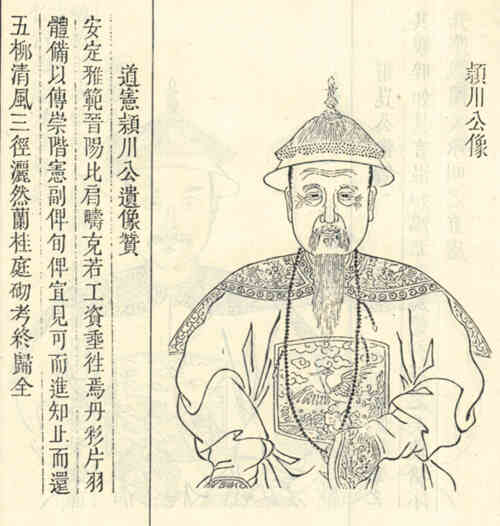 頴川公像
道憲頴川公遺像贊
安定雅範晉陽比肩疇克若工資垂徃焉丹彩片羽
體備以傳崇階憲副俾旬俾宜見可而進知止而還
五柳清風三徑灑然蘭桂庭砌考終歸全